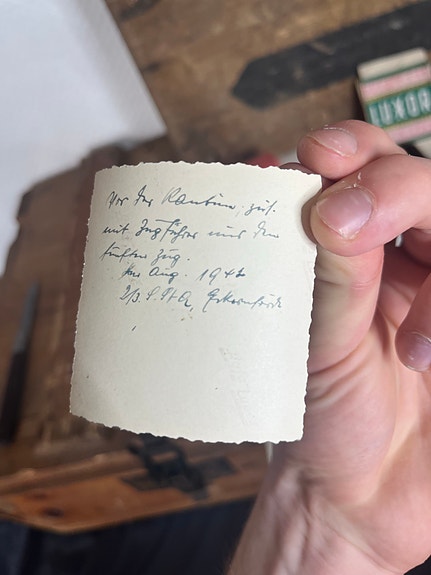 Vor der Kantine, zus.
mit Zugführer und dem
fünften Zug.
Im Aug. 1942
2/3. S.St.A, Eckernförde